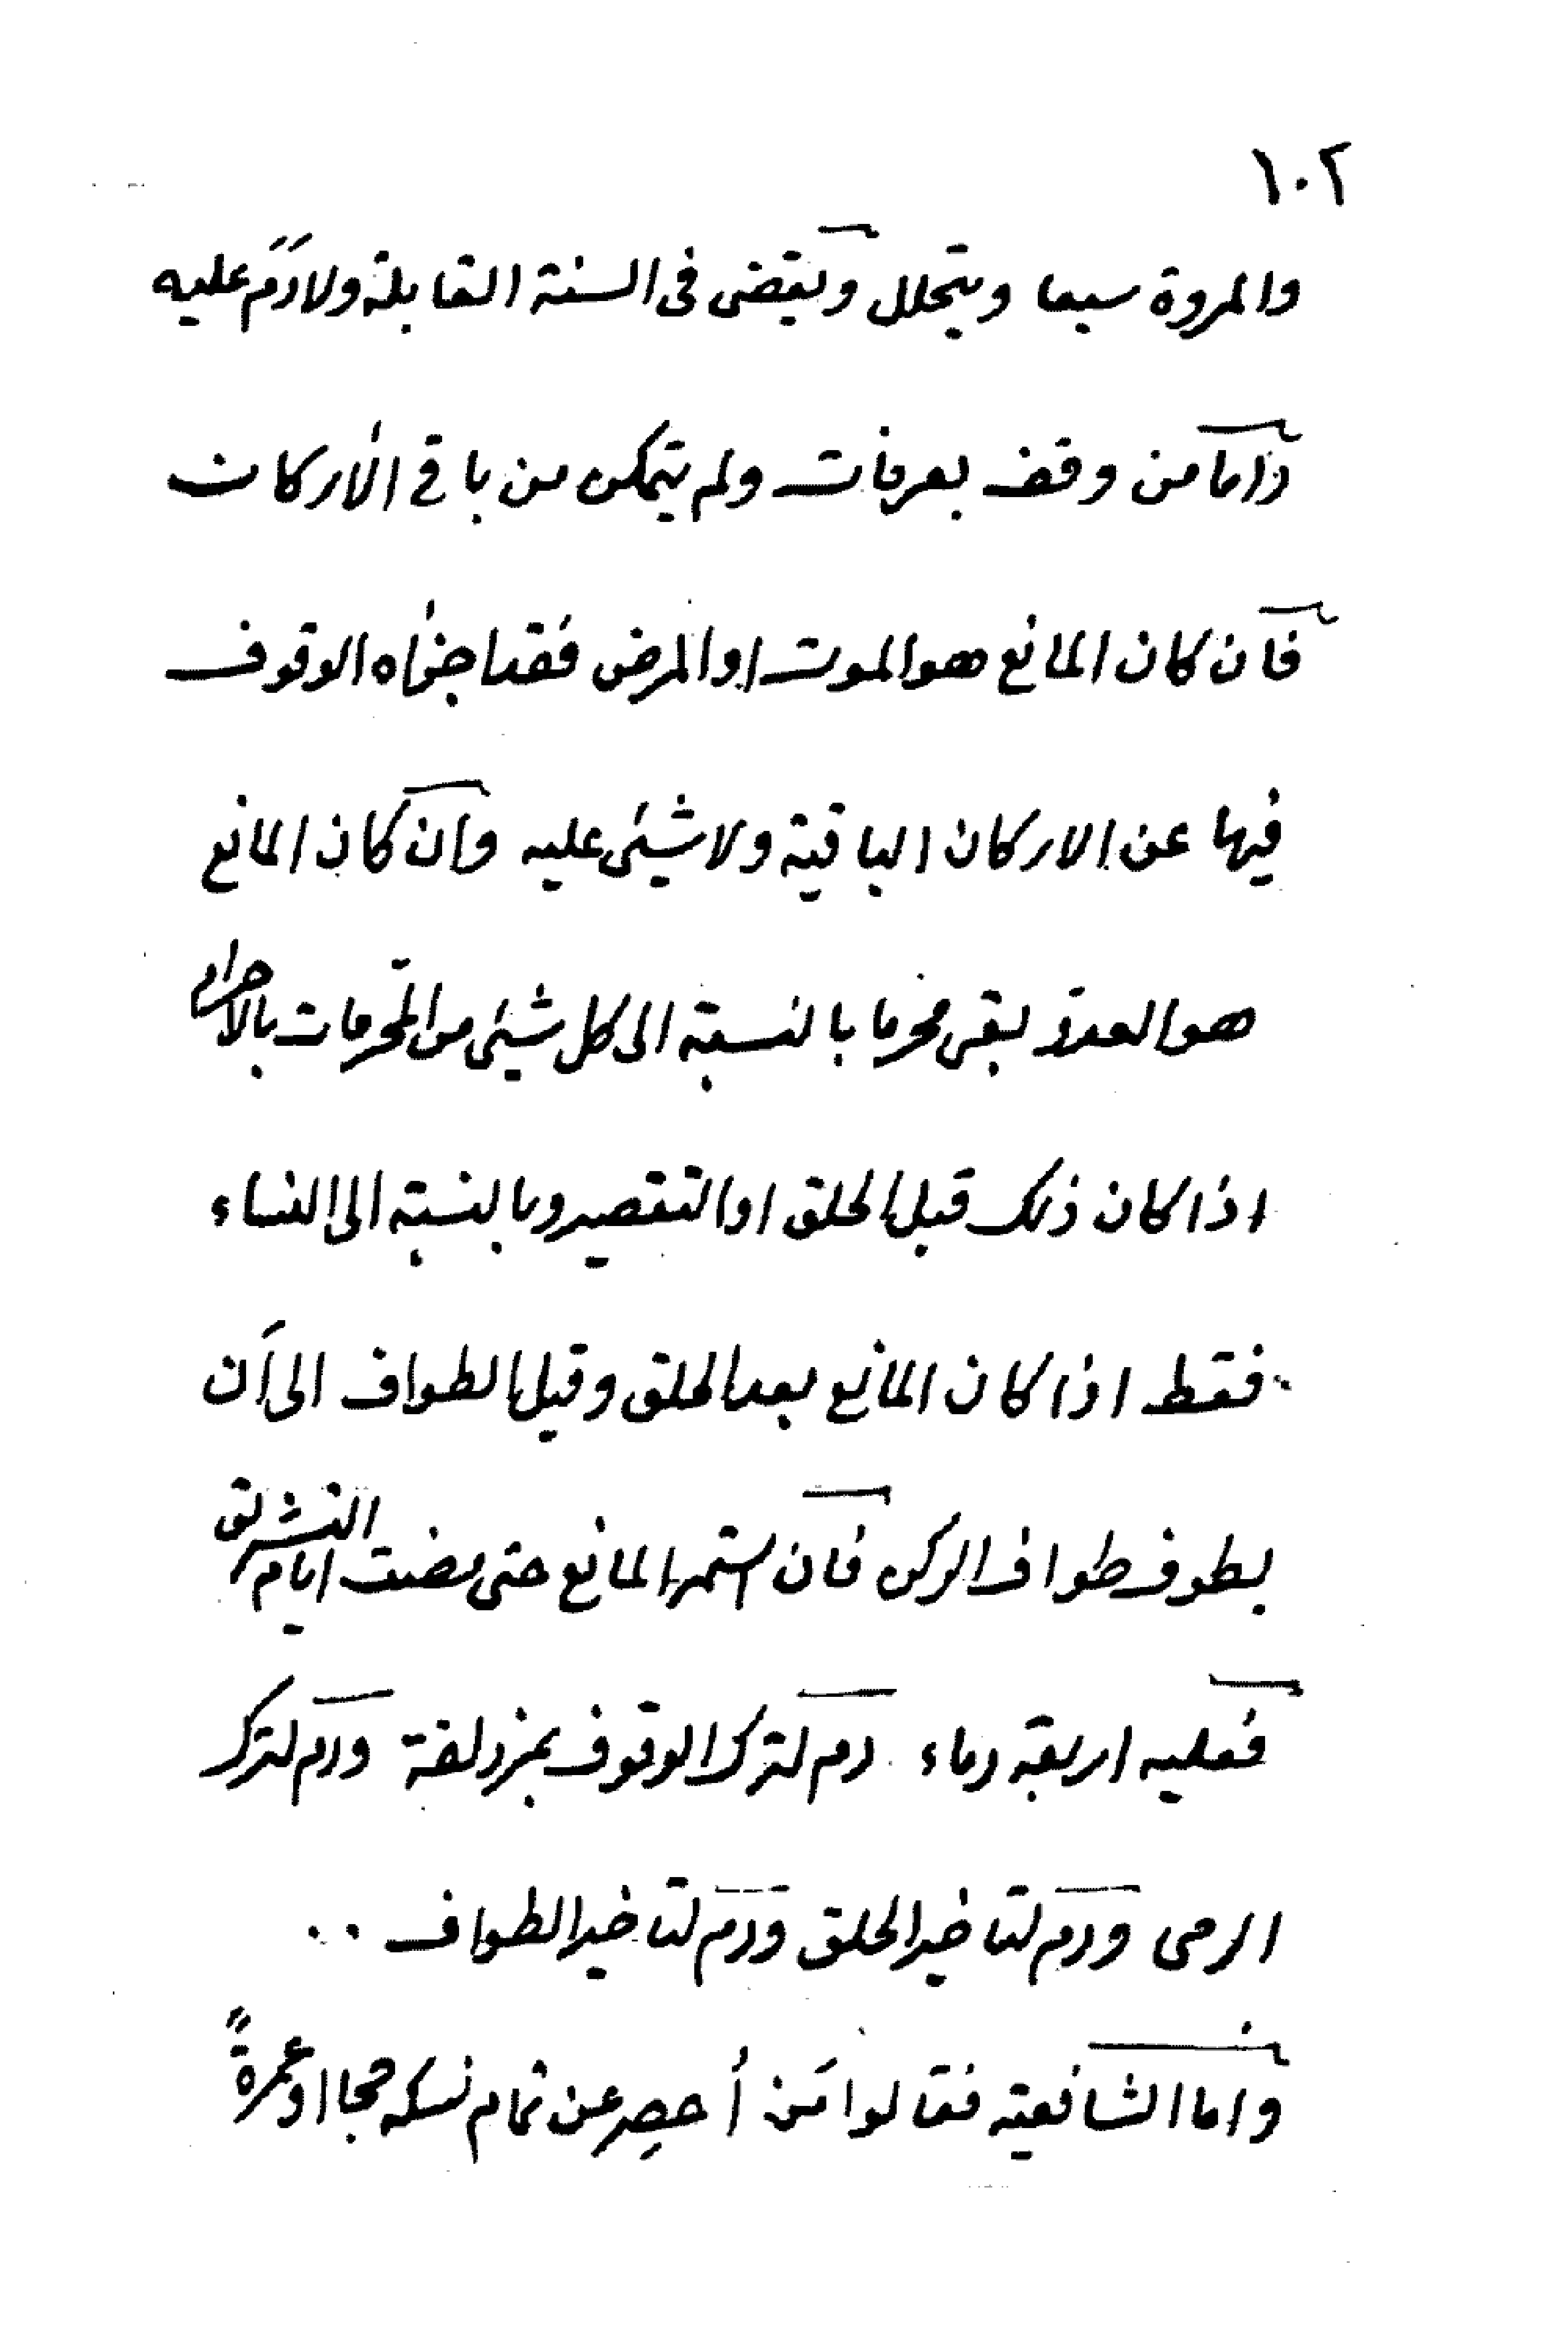 ١٠٢
والمروة سبعا ويتحلل ويقضى فى السنة القابلة ولا دَمً عليه
واما من وقف بعرفات ولم يتمكن من باقي الأركان
فان كان المانع هو الموت او المرض فقد اجزأه الوقوف
فيها عن الاركان الباقية ولا شيئى عليه وان كان المانع
هو العدوّ بقى محرما بالنسبة الى كل شيئى من المحرّمات بالاحرام
اذا كان ذلك قبل الحلق او التقصير وبالنسبة الى النساء
فقط اذا كان المانع بعد الحلق وقبل الطواف الى أن
يطوف طواف الركن فان استمر المانع حتى مضت ايام التشريق
فعليه اربعة دماء دم لترك الوقوف بمزدلفة ودم لترك
الرمى ودم لتاخير الحلق ودم لتاخير الطواف ..
واما الشافعية فقالوا مَن أحصِر عن تمام نسكه حجا او عمرةً